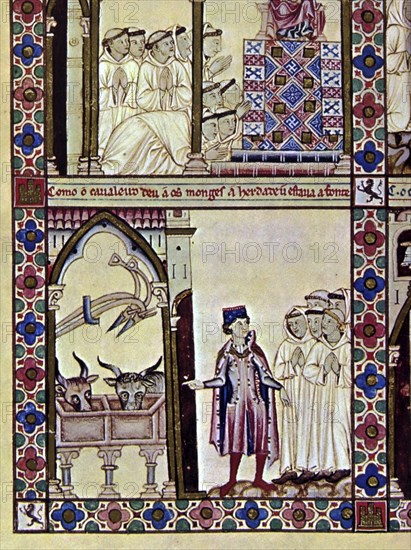 Como o cavaleiro deu a os monges a herdade u estava a fonte
PHOTO12